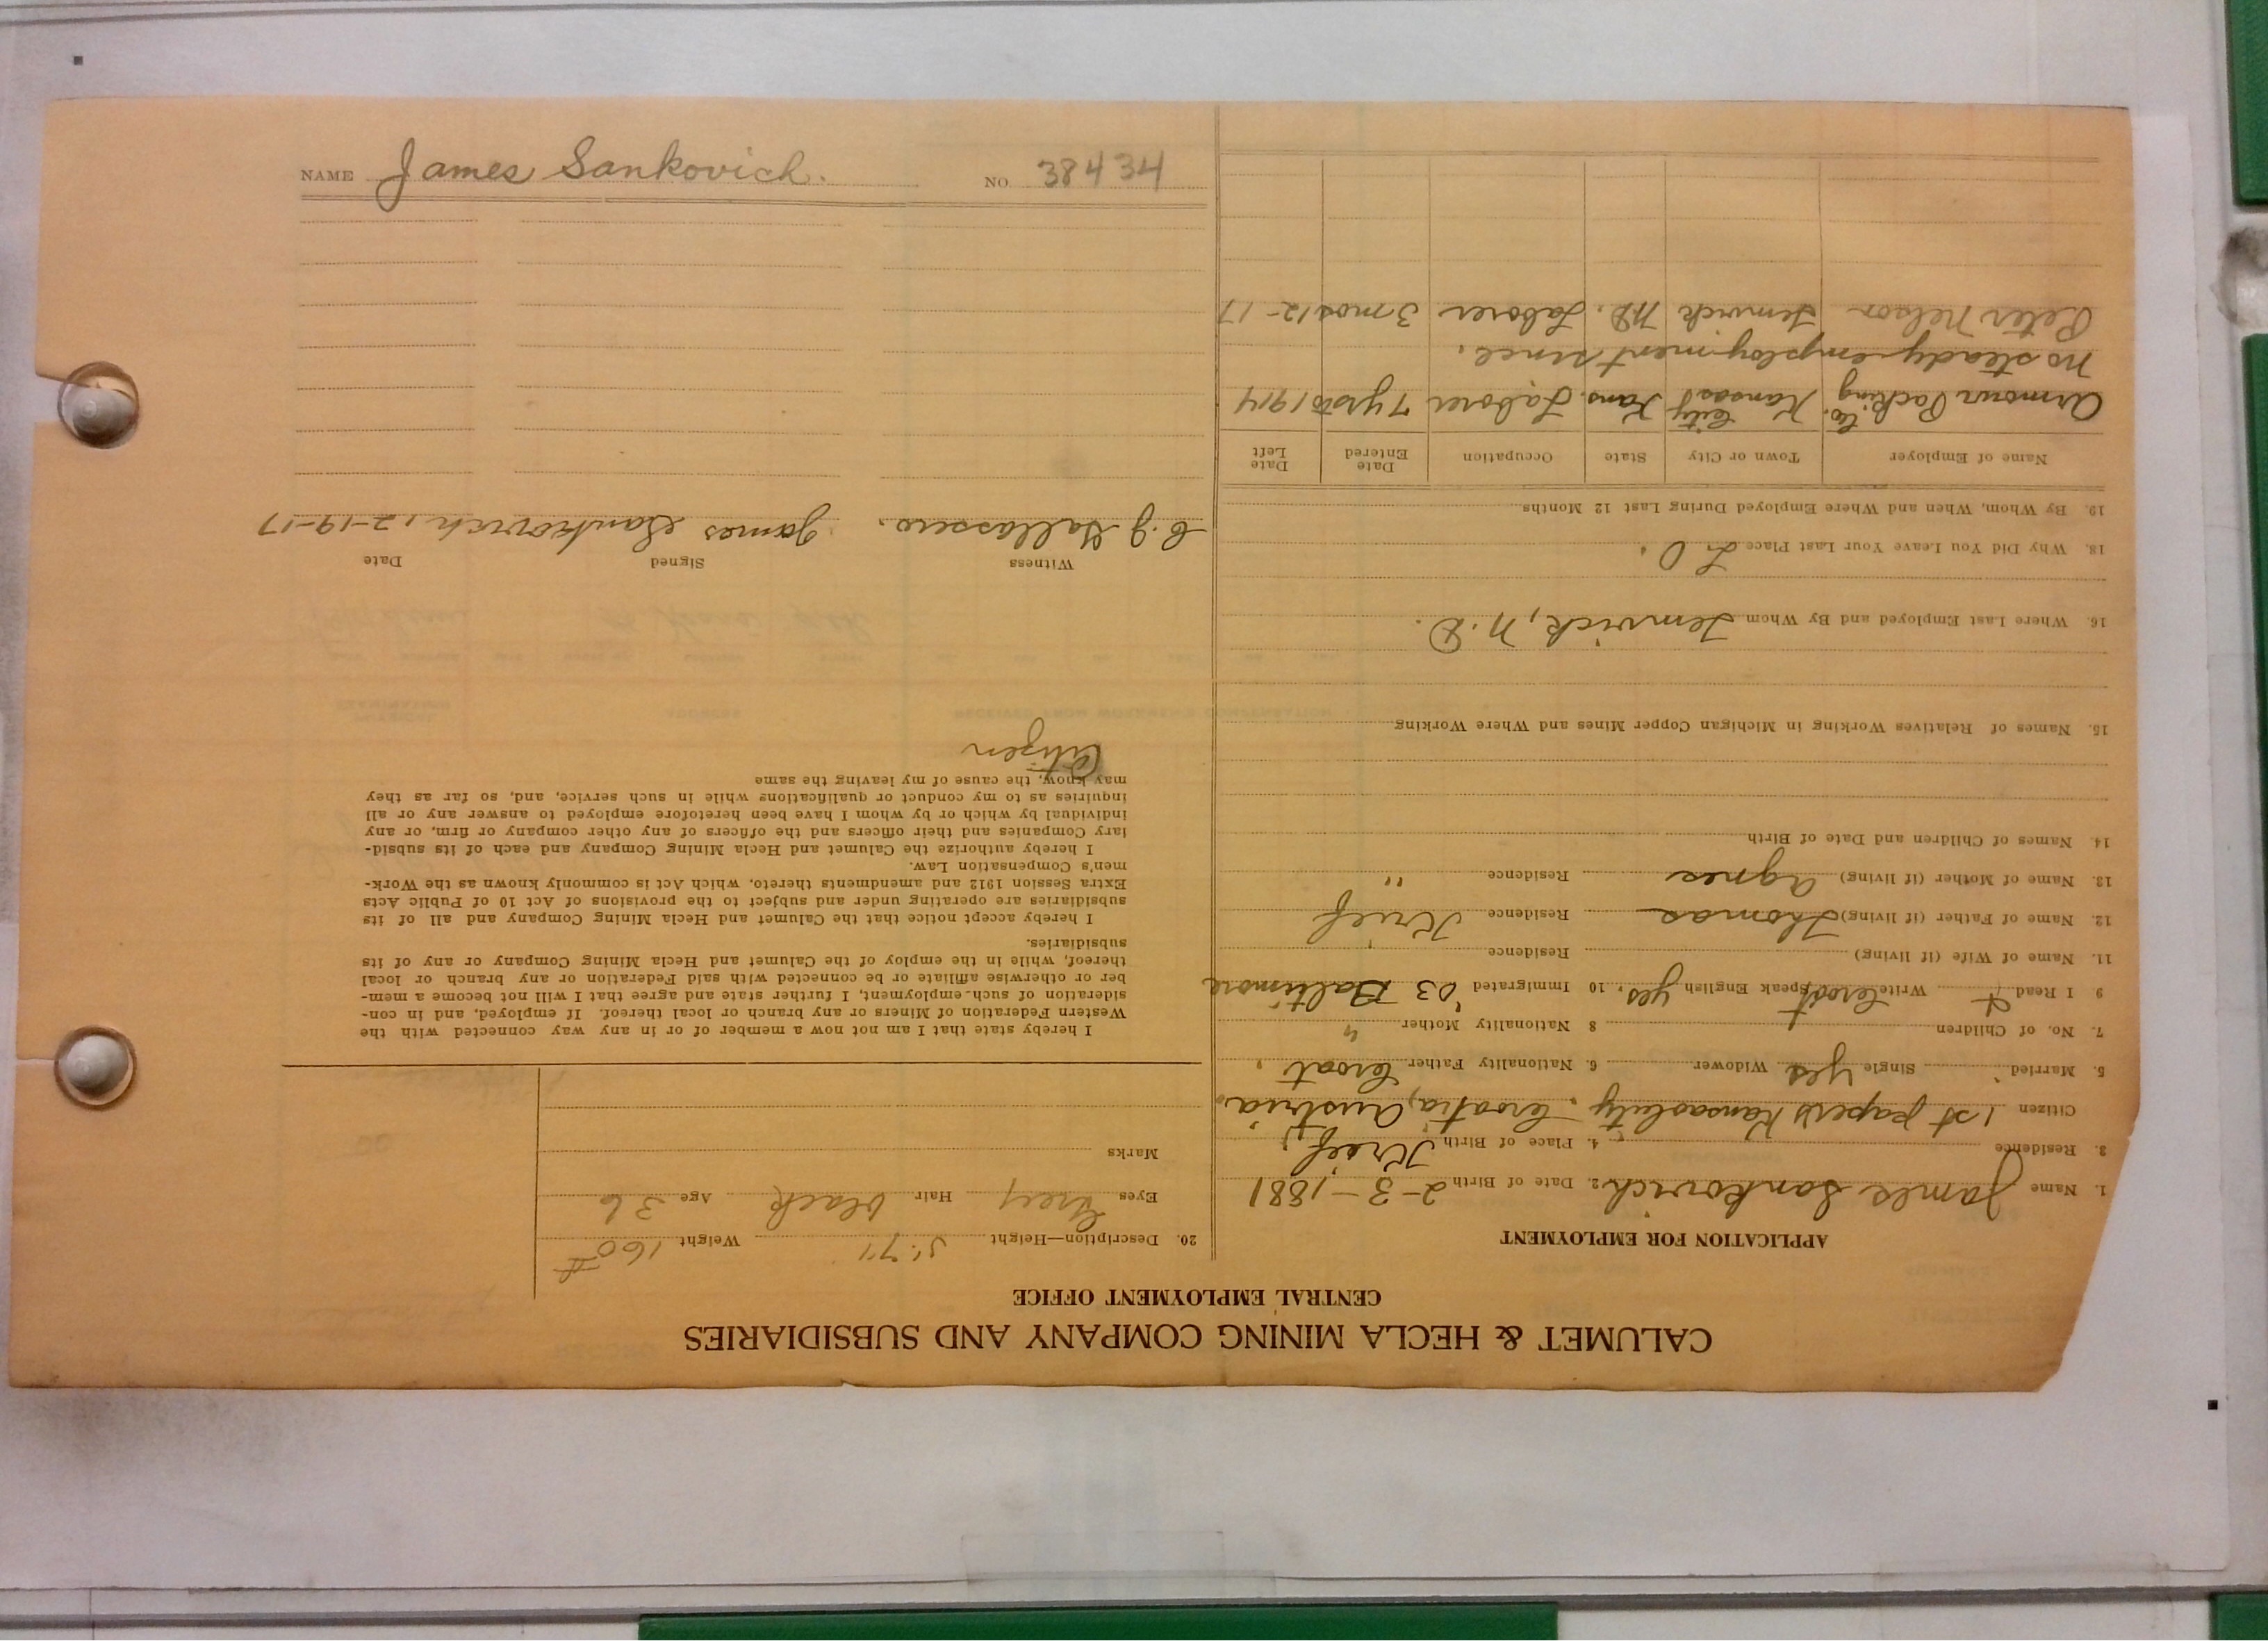 NAME James Sankovich. NO. 38434
CALUMET & HECLA MINING COMPANY AND SUBSIDIARIES
CENTRAL EMPLOYMENT OFFICE
APPLICATION FOR EMPLOYMENT
1. Name James Sankovich 2. Date of Birth 2-3-1881
3. Residence 4. Place of Birth
Citizen 1st papers Kansas City. Croatia, Austria.
5. Married Single yes Widower 6. Nationality Father Croat
7. No. of Children 8 Nationality Mother "
9 I Read & Write Croat Speak English yes. 10 Immigrated '03 Baltimore
11. Name of Wife (if living) Residence
12. Name of Father (if living) Thomas Residence
13. Name of Mother (if living) Agnes Residence "
14. Names of Children and Date of Birth
15. Names of Relatives Working in Michigan Copper Mines and Where Working
16. Where Last Employed and By Whom Temvick, N.D.
18. Why Did You Leave Your Last Place L. O.
19. By Whom, When and Where Employed During Last 12 Months
Name of Employer Town or City State Occupation Date Entered Date Left
Armour Packing Co. Kansas City Kans. Laborer 7 yrs to 1914
No steady employment since.
Peter Nelson Temvick N.D. Laborer 3 mos 12-17
20. Description—Height 5'.7" Weight 160#
Eyes Grey Hair black Age 36
Marks
I hereby state that I am not now a member of or in any way connected with the
Western Federation of Miners or any branch or local thereof. If employed, and in con-
sideration of such employment, I further state and agree that I will not become a mem-
ber or otherwise affiliate or be connected with said Federation or any branch or local
thereof, while in the employ of the Calumet and Hecla Mining Company or any of its
subsidiaries.
I hereby accept notice that the Calumet and Hecla Mining Company and all of its
subsidiaries are operating under and subject to the provisions of Act 10 of Public Acts
Extra Session 1912 and amendments thereto, which Act is commonly known as the Work-
men's Compensation Law.
I hereby authorize the Calumet and Hecla Mining Company and each of its subsid-
iary Companies and their officers and the officers of any other company or firm, or any
individual by which or by whom I have been heretofore employed to answer any or all
inquiries as to my conduct or qualifications while in such service, and, so far as they
may know, the cause of my leaving the same
Citizen
Witness Signed Date
James Sankovich 12-19-17